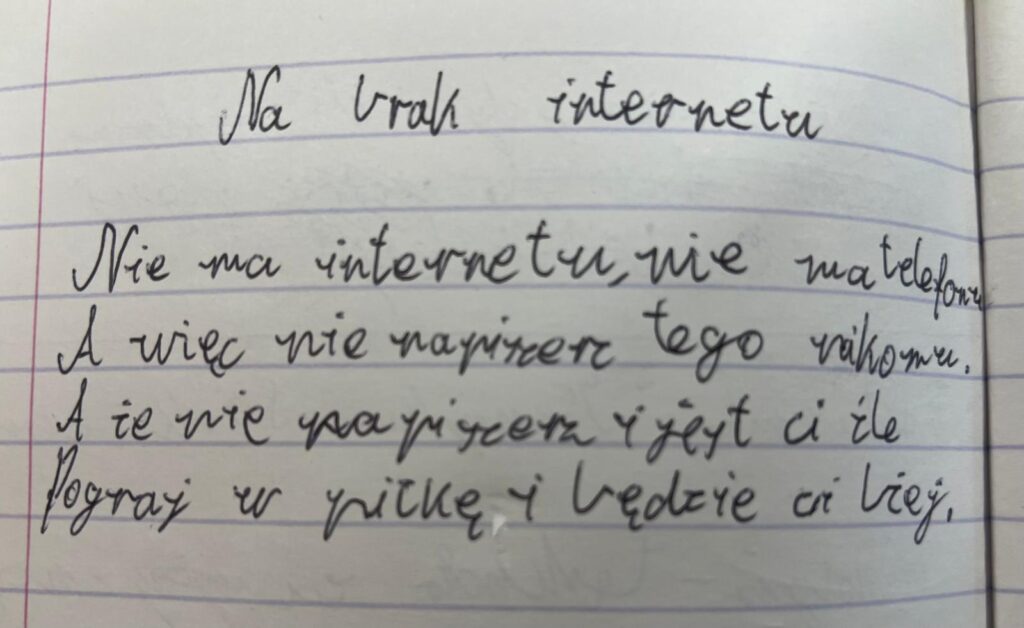 Na brak internetu
Nie ma internetu, nie ma telefonu
A więc nie napiszesz tego nikomu.
A że nie napiszesz i jest ci źle
Pograj w piłkę i będzie ci lżej.